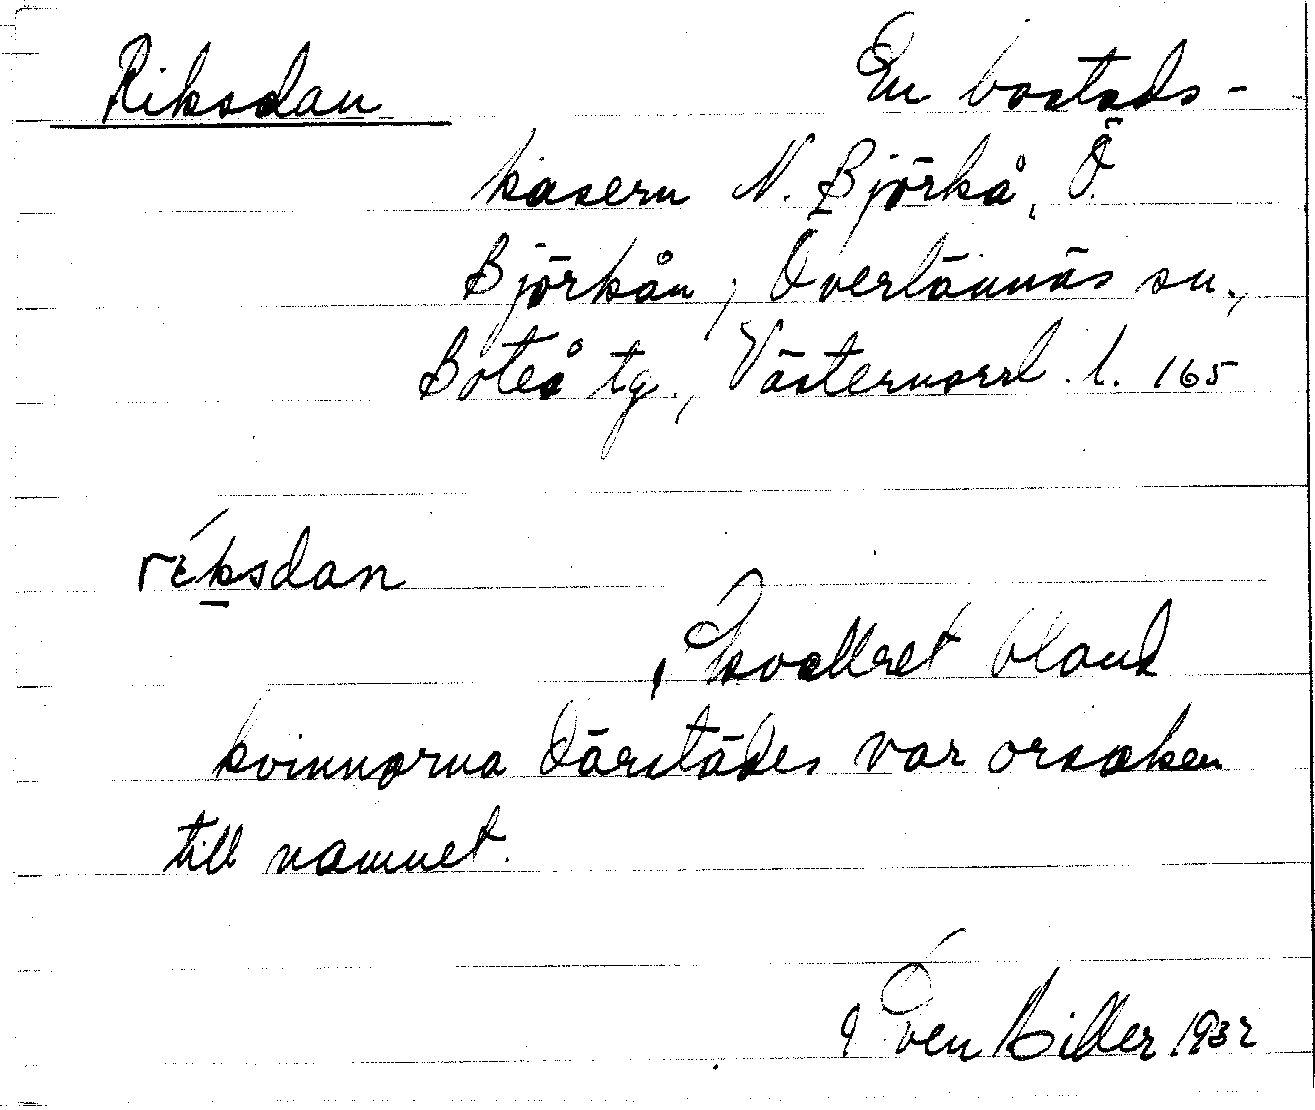 Riksdan En bostads-
kasern N. Björkå, Ö.
Björkån, Överlännäs sn.,
Boteå tg., Västernorrl. l. 165
riksdan
Skvallret bland
kvinnorna därstädes var orsaken
till namnet.
Sven 1932